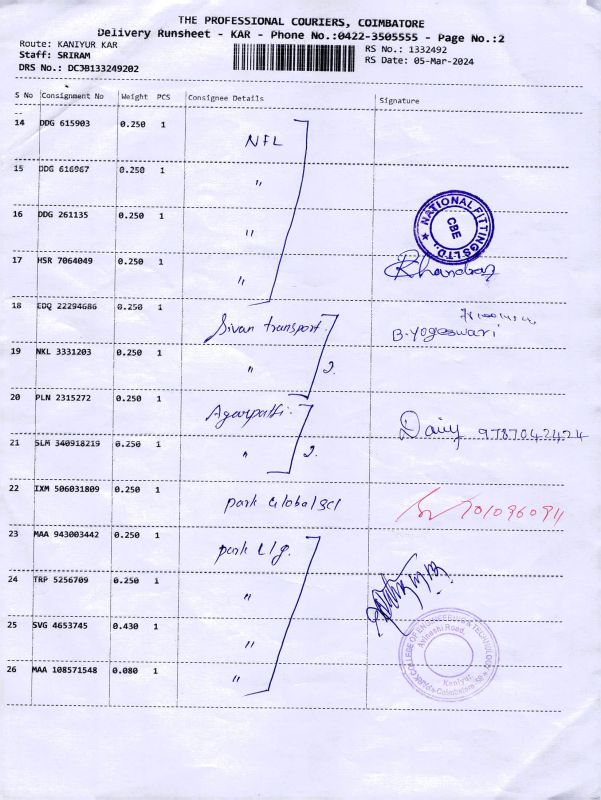 THE PROFESSIONAL COURIERS, COIMBATORE
Delivery Runsheet - KAR - Phone No.:0422-3505555 - Page No.:2
Route: KANIYUR KAR
RS No.: 1332492
Staff: SRIRAM
RS Date: 05-Mar-2024
DRS No.: DCJB133249202
S No Consignment No Weight PCS Consignee Details Signature
14 DDG 615903 0.250 1 NFL
15 DDG 616967 0.250 1 "
16 DDG 261135 0.250 1 "
NATIONAL FITTINGS LTD.
CBE
17 HSR 7064049 0.250 1 "
18 EDQ 22294686 0.250 1 Sivan transport.
B.Yogeswari
19 NKL 3331203 0.250 1 " 2.
20 PLN 2315272 0.250 1
9787042424
21 SLM 340918219 0.250 1 " 2.
22 IXM 506031809 0.250 1 park Global scl
23 MAA 943003442 0.250 1 park
24 TRP 5256709 0.250 1 "
25 SVG 4653745 0.430 1 "
COLLEGE OF ENGINEERING & TECHNOLOGY
Avinashi Road,
Kaniyur
Coimbatore
26 MAA 108571548 0.080 1 "